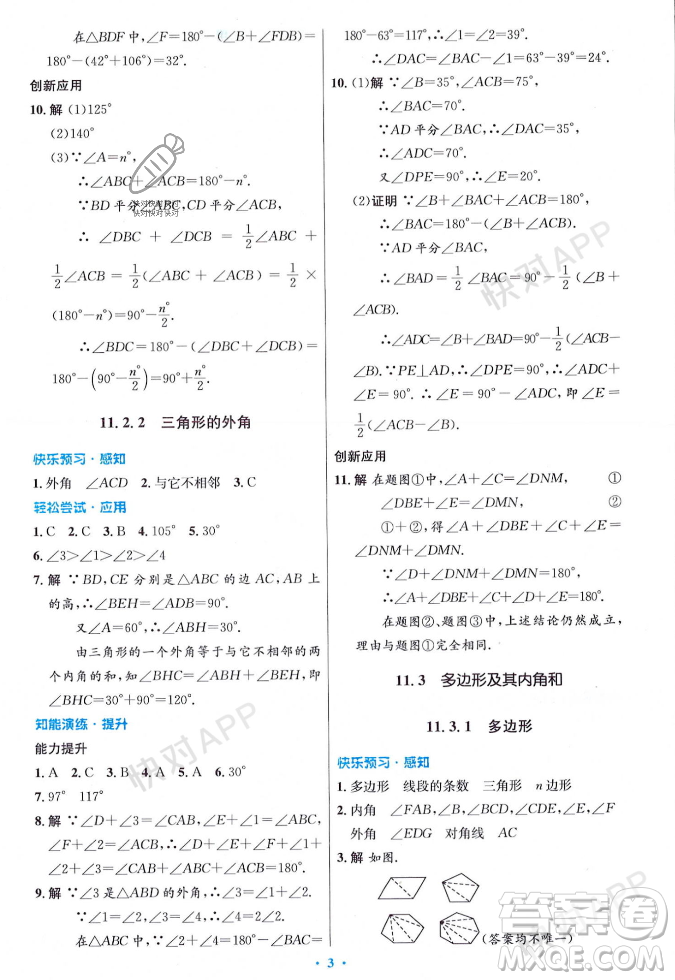 在△BDF中，∠F=180°−(∠B+∠FDB)=
180°−(42°+106°)=32°.
创新应用
10. 解 (1)125°
(2)140°
(3)∵∠A=n°,
∴∠ABC+∠ACB=180°−n°.
∵BD平分∠ABC,CD平分∠ACB,
∴∠DBC+∠DCB=1/2∠ABC+
1/2∠ACB=1/2(∠ABC+∠ACB)=1/2×
(180°−n°)=90°−n°/2.
∴∠BDC=180°−(∠DBC+∠DCB)=
180°−(90°−n°/2)=90°+n°/2.
11.2.2 三角形的外角
快乐预习·感知
1. 外角 ∠ACD 2. 与它不相邻 3. C
轻松尝试·应用
1. C 2. C 3. B 4. 105° 5. 30°
6. ∠3>∠1>∠2>∠4
7. 解 ∵BD,CE分别是△ABC的边AC,AB上
的高,∴∠BEH=∠ADB=90°.
又∠A=60°,∴∠ABH=30°.
由三角形的一个外角等于与它不相邻的两个
内角的和,知∠BHC=∠ABH+∠BEH,即
∠BHC=30°+90°=120°.
知能演练·提升
能力提升
1. A 2. C 3. B 4. A 5. B 6. C
7. 97° 117°
8. 解 ∵∠D+∠3=∠CAB,∠E+∠1=∠ABC,
∠2+∠F=∠ACB,∴∠D+∠E+∠F+∠1
+∠2+∠3=∠CAB+∠ABC+∠ACB=180°.
9. 解 ∵∠3是△ABD的外角,∴∠3=∠1+∠2.
∵∠1=∠2,∴∠3=2∠2.∵∠4=∠3,
∴∠4=2∠2.∴∠2+∠4=3∠2=180°−∠BAC=
180°−63°=117°.∴∠2=39°.∴∠1=39°.
∴∠DAC=∠BAC−∠1=63°−39°=24°.
10. (1)解 ∵∠B=35°,∠ACB=75°,
∴∠BAC=70°.
∵AD平分∠BAC,∴∠DAC=35°.
∴∠ADC=70°.
又∠DPE=90°,∴∠E=20°.
(2)证明 ∵∠B+∠BAC+∠ACB=180°,
∴∠BAC=180°−(∠B+∠ACB).
∵AD平分∠BAC,
∴∠BAD=1/2∠BAC=90°−1/2(∠B+
∠ACB).
∴∠ADC=∠B+∠BAD=90°−1/2(∠ACB−
∠B).∵PE⊥AD,∴∠DPE=90°.∴∠ADC+
∠E=90°.∴∠E=90°−∠ADC,即∠E=
1/2(∠ACB−∠B).
创新应用
11. 解 在题图①中,∠A+∠C=∠DNM, ①
∠DBE+∠E=∠DMN, ②
①+②,得∠A+∠DBE+∠C+∠E=
∠DNM+∠DMN.
∵∠D+∠DNM+∠DMN=180°,
∴∠A+∠DBE+∠C+∠D+∠E=180°.
在题图②、题图③中,上述结论仍然成立,
理由与题图①完全相同.
11.3 多边形及其内角和
11.3.1 多边形
快乐预习·感知
1. 多边形 线段的条数 三角形 n边形
2. 内角 ∠FAB,∠B,∠BCD,∠CDE,∠E,∠F
外角 ∠EDG 对角线 AC
3. 解 如图.
(答案均不唯一)
· 3 ·
快对APP
快对APP
快对APP
快对快对快对
快对快对快对
答案圈